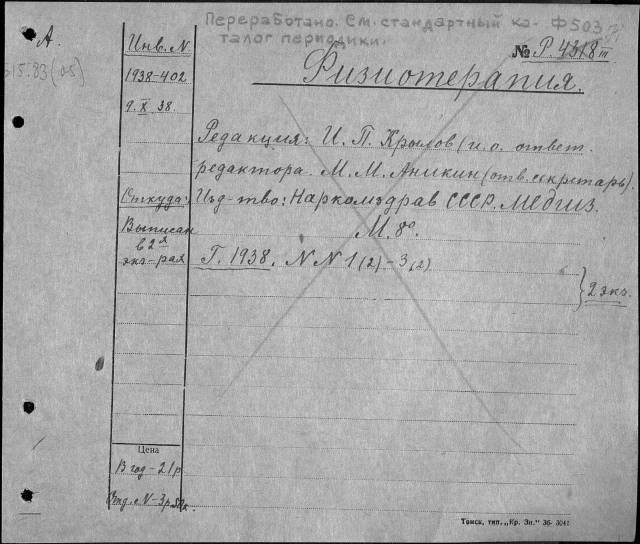 Переработано. См. стандартный ка- Ф 503
талог периодики.
А.
515.83(05)
Инв. N
№ Р. 4318 III
Физиотерапия.
1938-402
9. X. 38.
Редакция: И. П. Крылов (и. о. ответ.
редактора. М. М. Аникин (отв. секретарь)
Откуда: Изд-тво: Наркомздрав СССР. Медгиз.
Выписан
М. 8°.
в 2я
экз-рая
Г. 1938. N N 1(2)-3(2)
2 экз.
Цена
В год - 21 р
Отд. N - 3 р. 50 к
Томск, тип. „Кр. Зн." 36- 3041